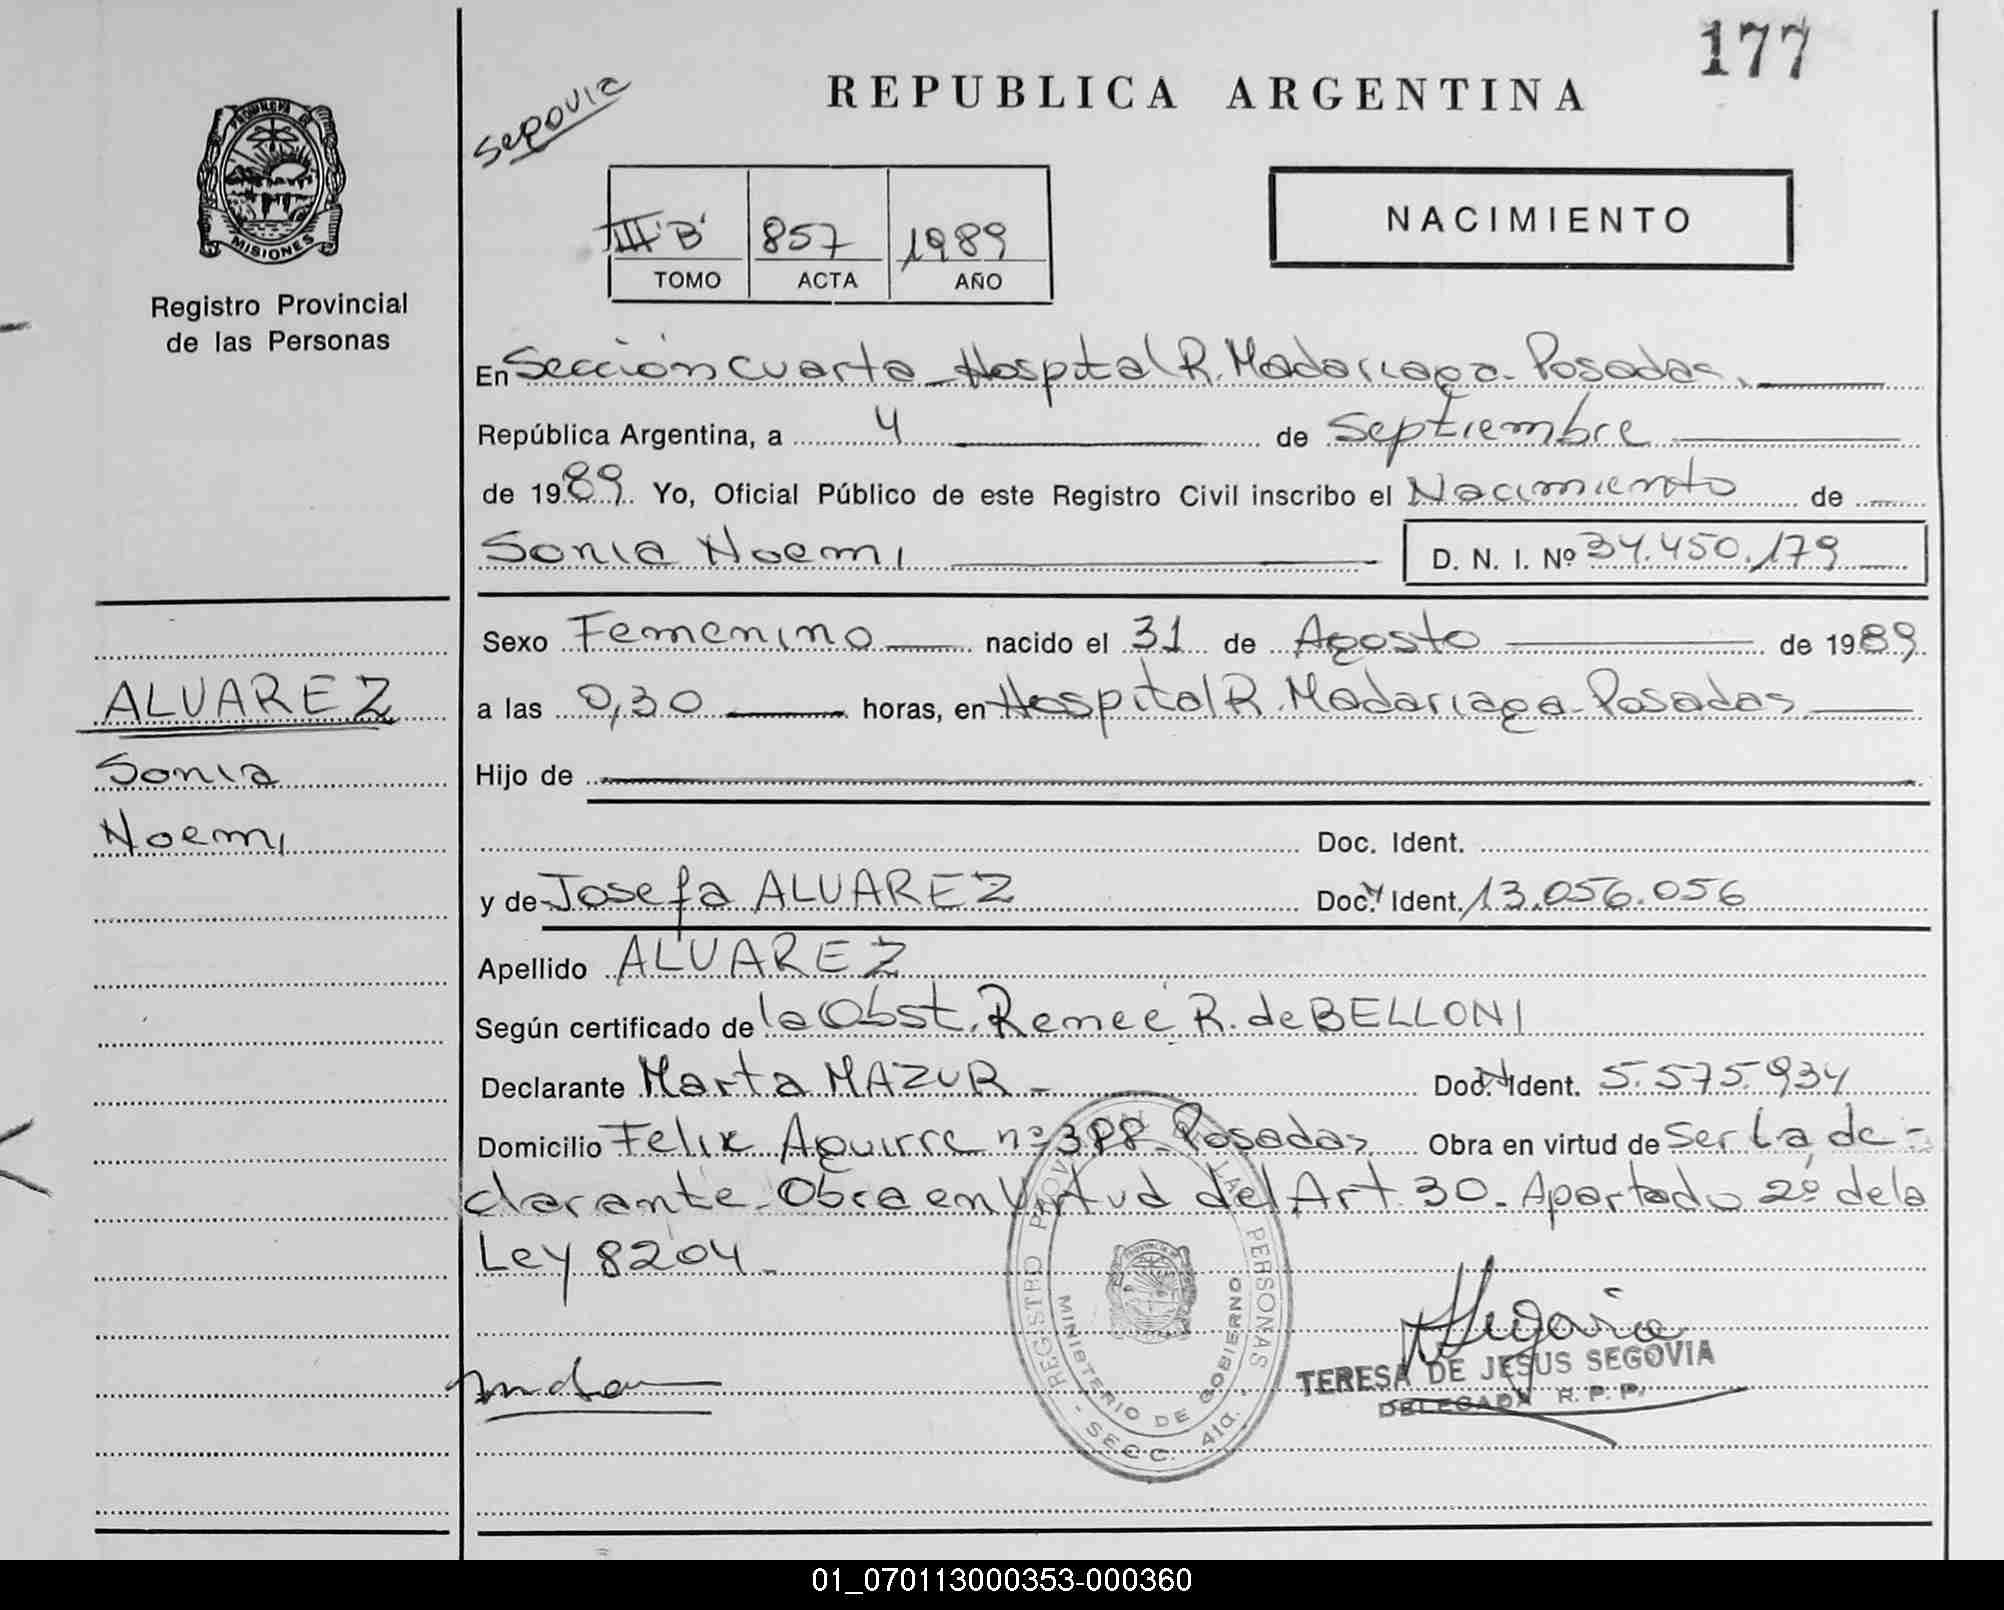 177
Segovia
REPUBLICA ARGENTINA
PROVINCIA DE
MISIONES
Registro Provincial
de las Personas
III "B" 857 1989
TOMO ACTA AÑO
NACIMIENTO
En Sección cuarta - Hospital R. Madariaga - Posadas.
República Argentina, a 4 de Septiembre
de 1989. Yo, Oficial Público de este Registro Civil inscribo el Nacimiento de
Sonia Noemi D. N. I. Nº 34.450.179
Sexo Femenino nacido el 31 de Agosto de 1989.
a las 0,30 horas, en Hospital R. Madariaga - Posadas.
Hijo de
Doc. Ident.
y de Josefa ALVAREZ Doc. Ident. 13.056.056
Apellido ALVAREZ
Según certificado de la Obst. Renee R. de BELLONI
Declarante Marta MAZUR - Doc. Ident. 5.575.934
Domicilio Felix Aguirre nº 388 - Posadas Obra en virtud de Ser la de-
clarante - Obra en Virtud del Art. 30 - Apartado 2º de la
Ley 8204 -
ALVAREZ
Sonia
Noemi
REGISTRO PROVINCIAL LAS PERSONAS
MINISTERIO DE GOBIERNO
- SECC. 41a. -
Segovia
TERESA DE JESUS SEGOVIA
DELEGADA R. P. P.
01_070113000353-000360